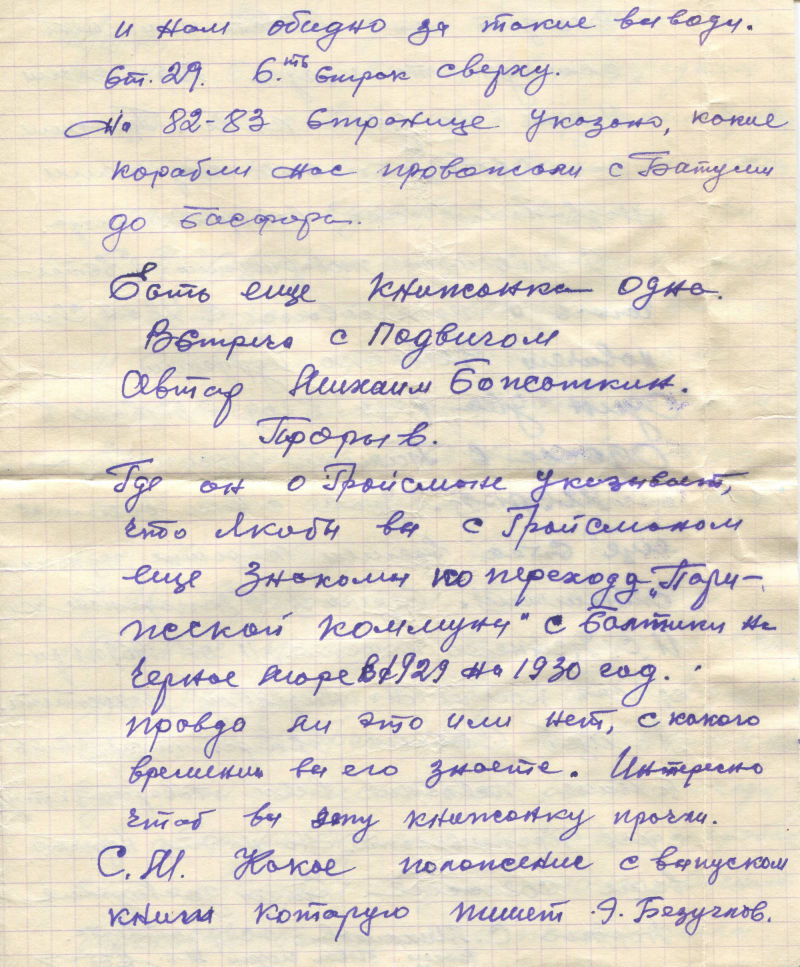 и нам обидно за такие выводы.
Ст. 29. 6.ть строк сверху.
На 82-83 странице указано, какие
корабли нас провожали с Батуми
до Басфора.
Есть еще книжонка одна.
Встреча с Подвигом
Автар Михаил Божаткин.
Прорыв.
Где он о Гройсмане указывает,
что якобы вы с Гройсманом
еще знакомы по переходу „Пари-
жской коммуны" с Балтики на
Черное море в 1929 на 1930 год.
правда ли это или нет, с какого
времени вы его знаете. Интересно
чтоб вы эту книжонку прочли.
С.М. Какое положение с выпуском
книги которую пишет